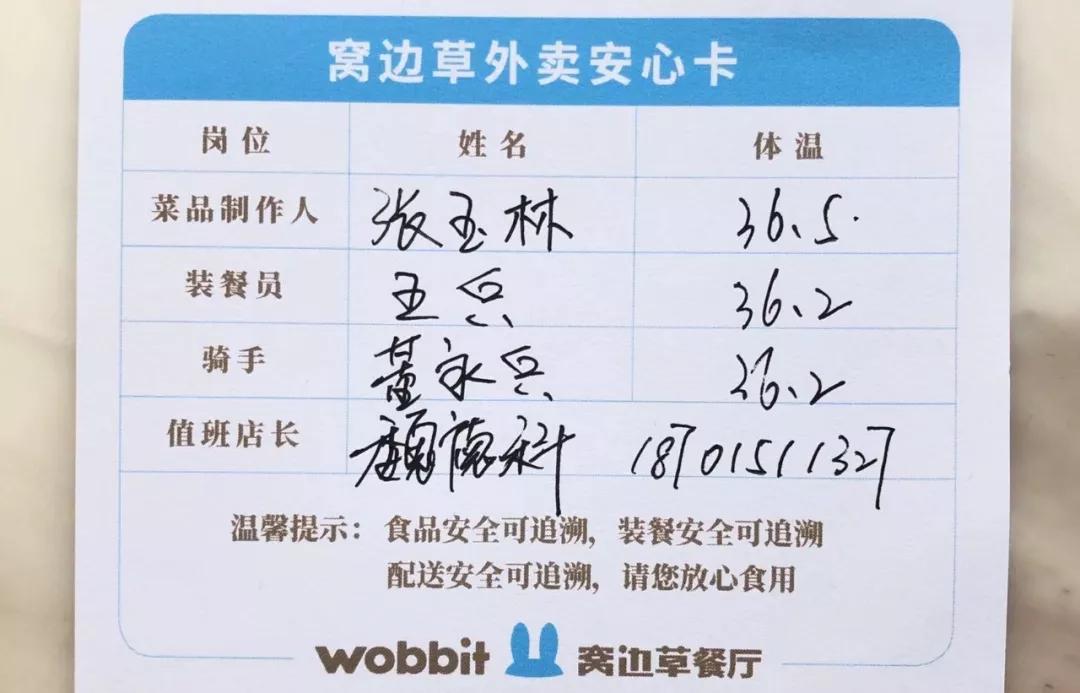 窝边草外卖安心卡
岗位 姓名 体温
菜品制作人 张玉林 36.5
装餐员 王兵 36.2
骑手 董永兵 36.2
值班店长 德科 18701511327
温馨提示：食品安全可追溯，装餐安全可追溯
配送安全可追溯，请您放心食用
wobbit 窝边草餐厅